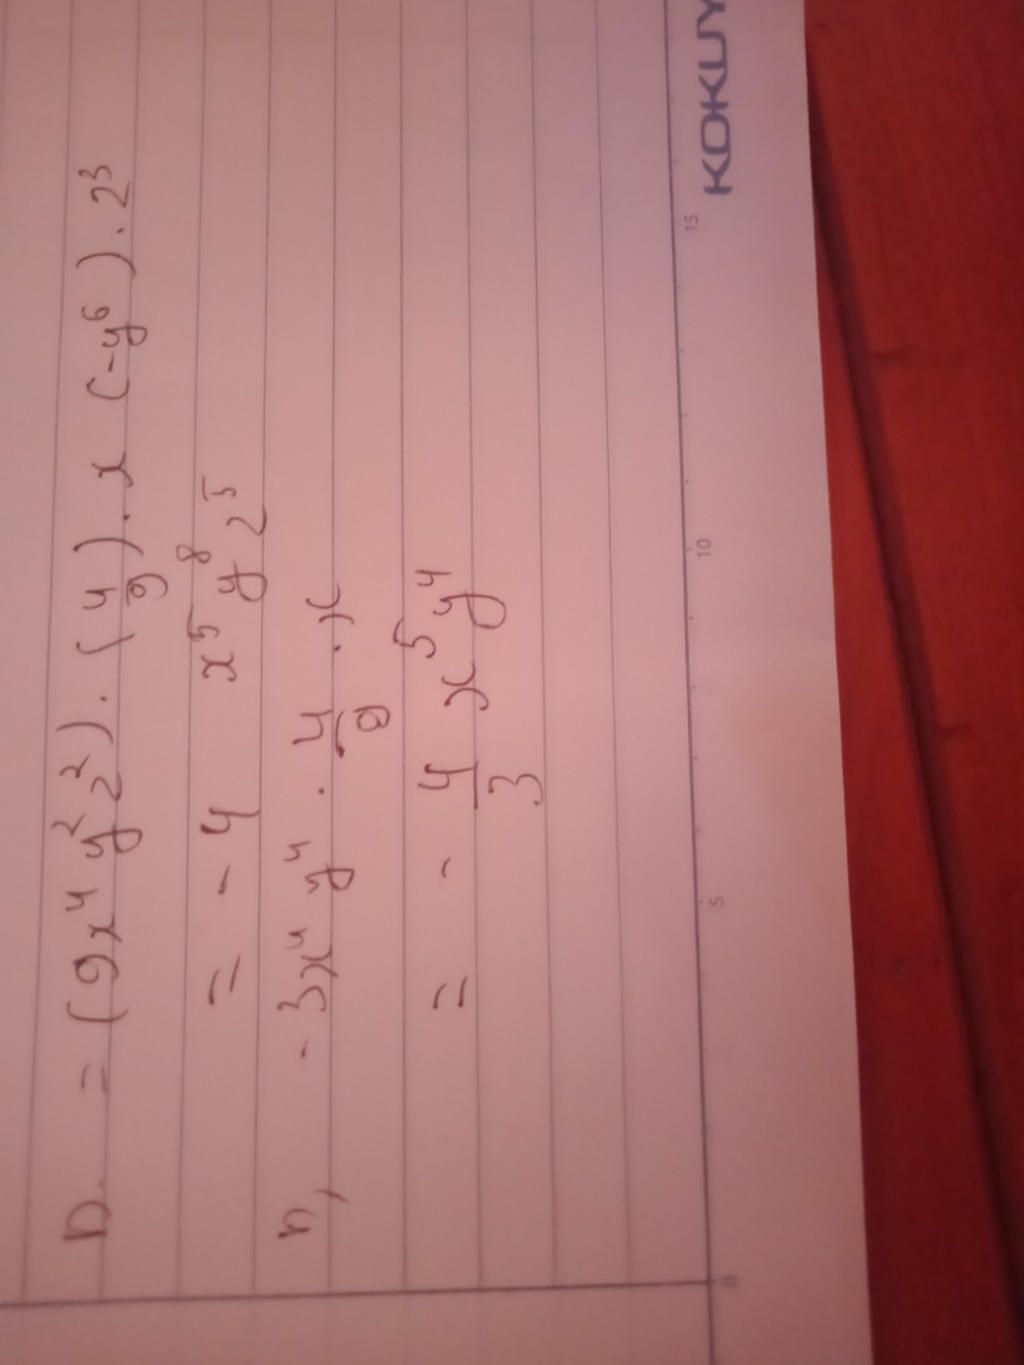 D. = (9x⁴y²z²) . (4/9) . x (-y⁶) . z³
= - 4 x⁵ y⁸ z⁵
n, - 3x⁴ y⁴ . 4/9 . x
= - 4/3 x⁵ y⁴
0 5 10 15
KOKUY